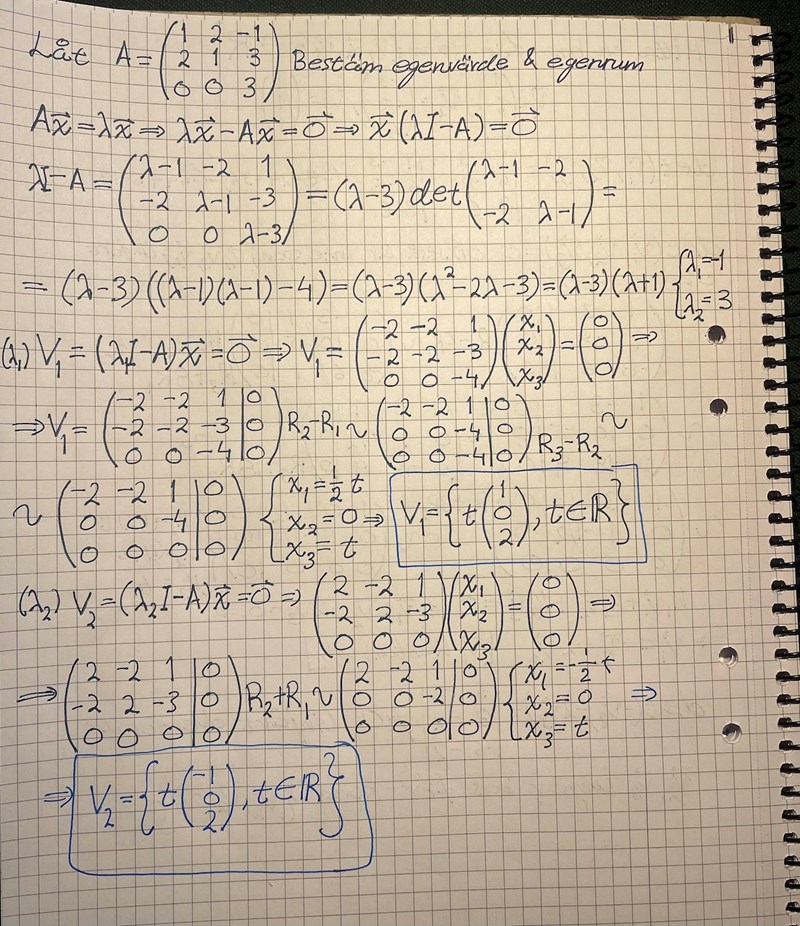 1
Låt A = (1 2 -1; 2 1 3; 0 0 3) Bestäm egenvärde & egenrum
Ax⃗ = λx⃗ ⇒ λx⃗ - Ax⃗ = 0⃗ ⇒ x⃗(λI - A) = 0⃗
λI - A = (λ-1 -2 1; -2 λ-1 -3; 0 0 λ-3) = (λ-3) det (λ-1 -2; -2 λ-1) =
= (λ-3)((λ-1)(λ-1)-4) = (λ-3)(λ²-2λ-3) = (λ-3)(λ+1) { λ₁=-1; λ₂=3
(λ₁) V₁ = (λ₁I - A)x⃗ = 0⃗ ⇒ V₁ = (-2 -2 1; -2 -2 -3; 0 0 -4)(x₁; x₂; x₃) = (0; 0; 0) ⇒
⇒ V₁ = (-2 -2 1 | 0; -2 -2 -3 | 0; 0 0 -4 | 0) R₂-R₁ ~ (-2 -2 1 | 0; 0 0 -4 | 0; 0 0 -4 | 0) R₃-R₂ ~
~ (-2 -2 1 | 0; 0 0 -4 | 0; 0 0 0 | 0) { x₁ = ½ t; x₂ = 0; x₃ = t ⇒ V₁ = { t(1; 0; 2), t∈ℝ }
(λ₂) V₂ = (λ₂I - A)x⃗ = 0⃗ ⇒ (2 -2 1; -2 2 -3; 0 0 0)(x₁; x₂; x₃) = (0; 0; 0) ⇒
⇒ (2 -2 1 | 0; -2 2 -3 | 0; 0 0 0 | 0) R₂+R₁ ~ (2 -2 1 | 0; 0 0 -2 | 0; 0 0 0 | 0) { x₁ = -½ t; x₂ = 0; x₃ = t ⇒
⇒ V₂ = { t(-1; 0; 2), t∈ℝ }